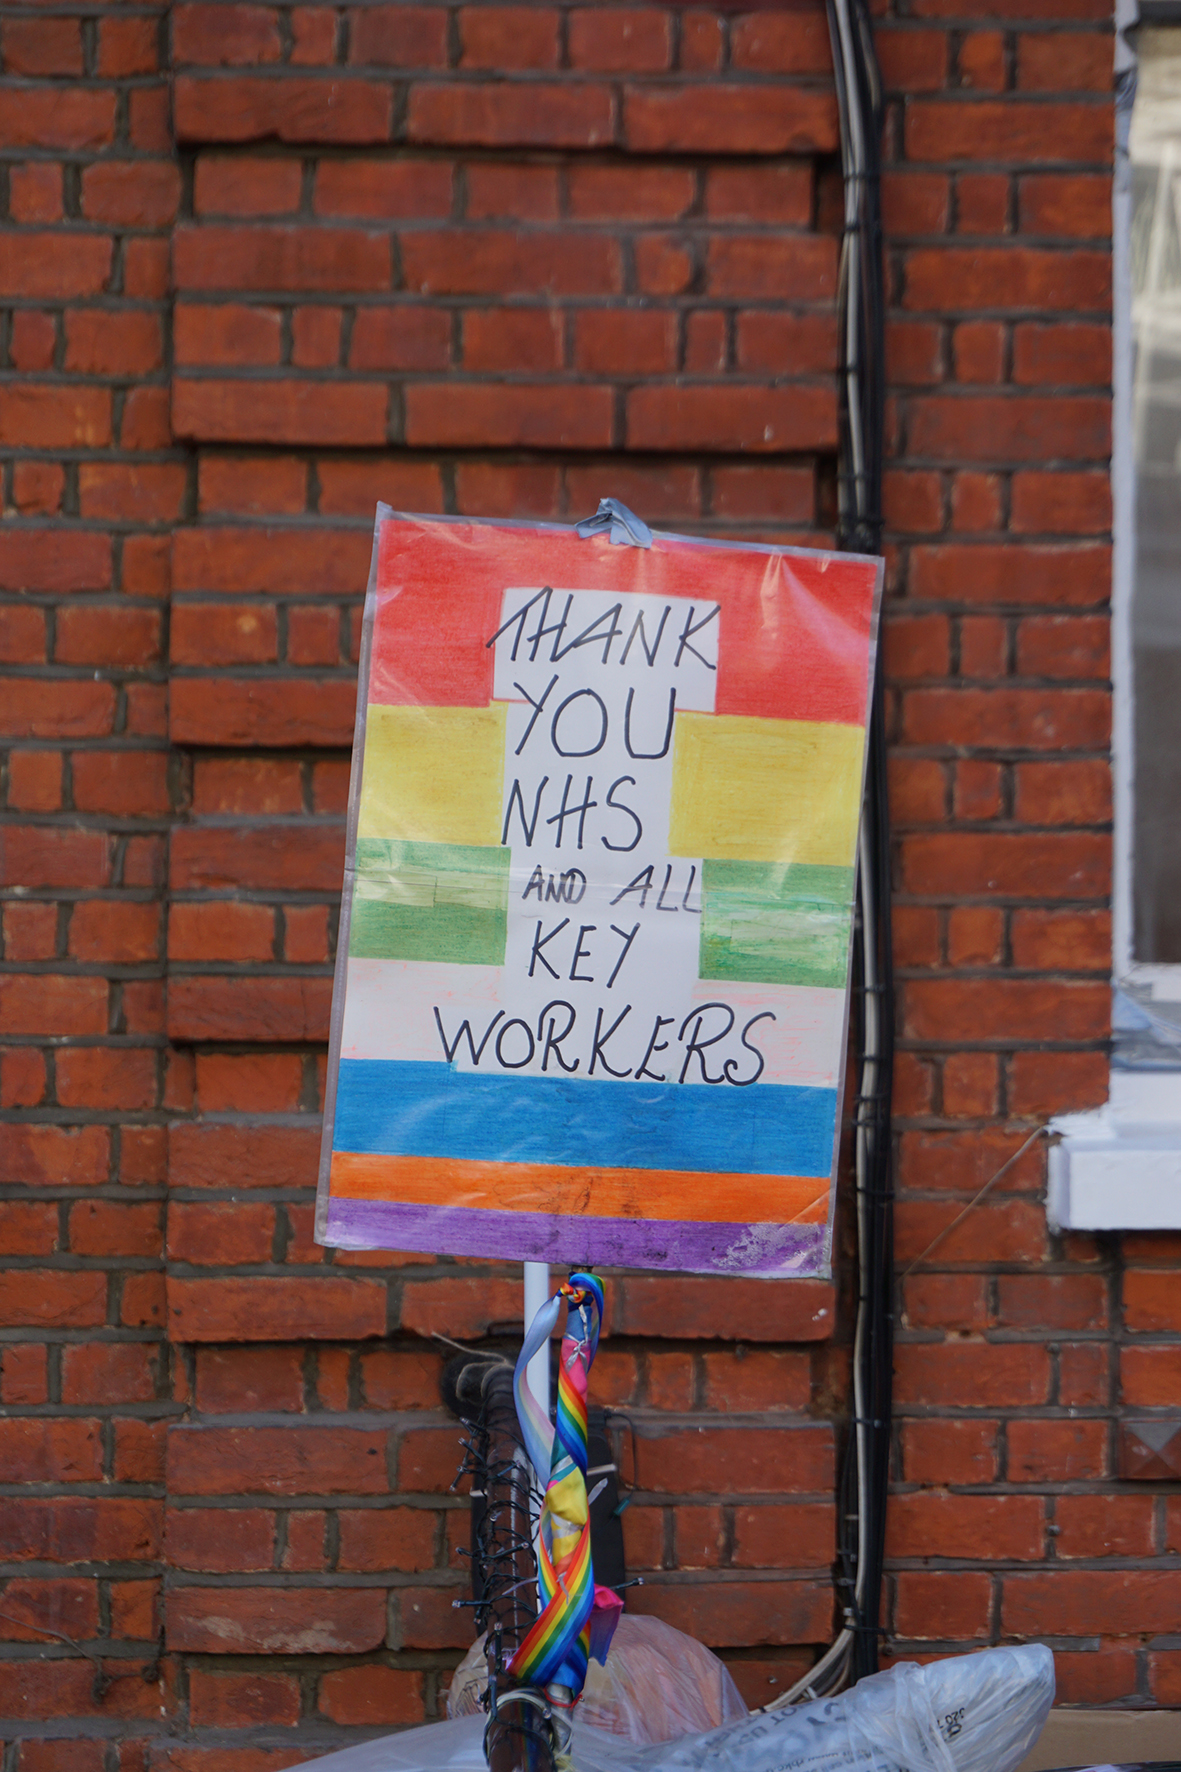 THANK
YOU
NHS
AND ALL
KEY
WORKERS